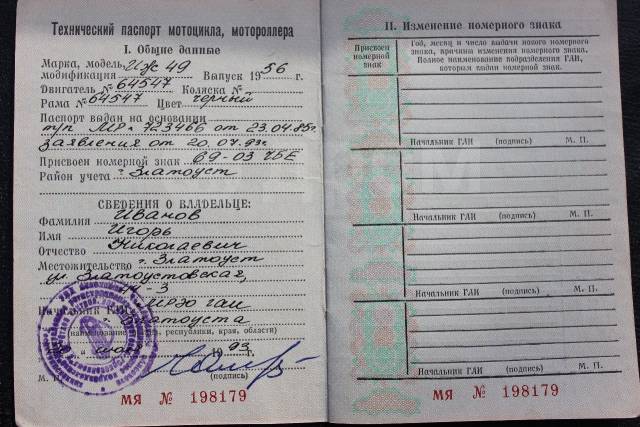 Технический паспорт мотоцикла, мотороллера
I. Общие данные
Марка, модель, Иж 49
модификация Выпуск 1956 г.
Двигатель № 64547 Коляска №
Рама № 64547 Цвет черный
Паспорт выдан на основании
т/п МР № 723466 от 23.04.85г.
заявления от 20.07.93г.
Присвоен номерной знак 69-03 ЧБЕ
Район учета г. Златоуст
СВЕДЕНИЯ О ВЛАДЕЛЬЦЕ:
Фамилия Иванов
Имя Игорь
Отчество Николаевич
Местожительство г. Златоуст
ул. Златоустовская,
Начальник ГАИ МРЭО ГАИ
г. Златоуста
республики, края, области)
93 г.
М. П. (подпись)
МЯ № 198179
II. Изменение номерного знака
Присвоен номерной знак
Год, месяц и число выдачи нового номерного
знака, причина изменения номерного знака.
Полное наименование подразделения ГАИ,
которым выдан номерной знак.
Начальник ГАИ (подпись) М. П.
Начальник ГАИ (подпись) М. П.
Начальник ГАИ (подпись) М. П.
Начальник ГАИ (подпись) М. П.
МЯ № 198179